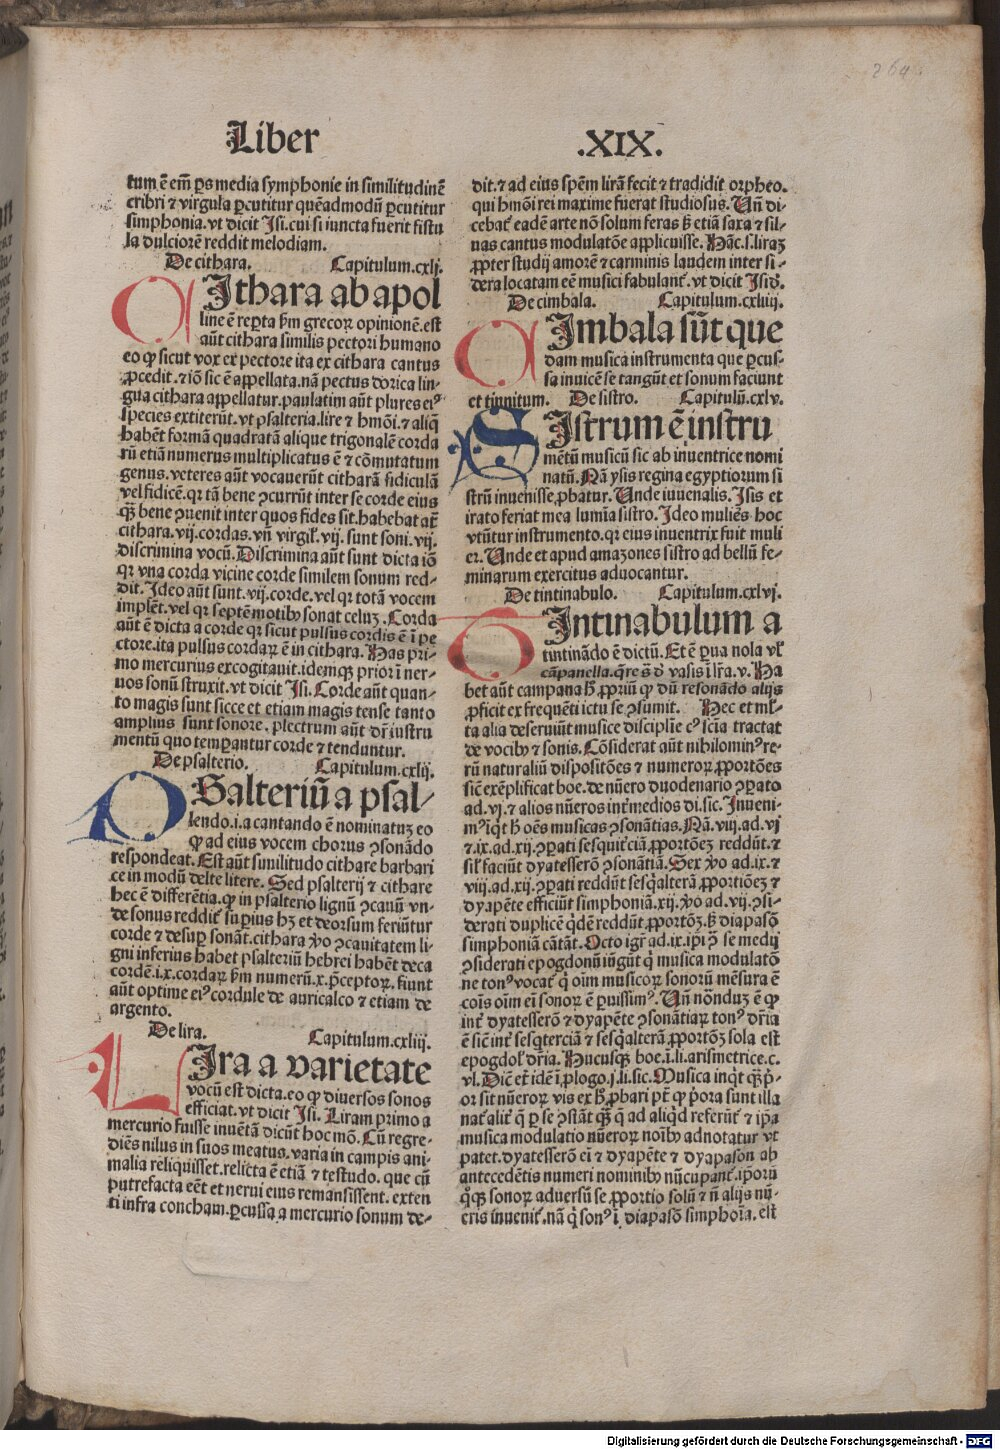 264
Liber
.XIX.
tum ē em̄ ꝑs media symphonie in similitudinē
cribri ⁊ virgula ꝑcutitur quēadmodū ꝑcutitur
simphonia. vt dicit Isi. cui si iuncta fuerit fistu
la dulciorē reddit melodiam.
De cithara. Capitulum.cxlj.
Ithara ab apol
line ē reꝑta ẜm grecoꝝ opinionē. est
aūt cithara similis pectori humano
eo ꝙ sicut vox ex pectore ita ex cithara cantus
ꝓcedit. ⁊ iō sic ē appellata. nā pectus dorica lin-
gua cithara appellatur. paulatim aūt plures eiꝰ
species extiterūt. vt psalteria. lire ⁊ hmōi. ⁊ aliq̄
habēt formā quadratā alique trigonalē corda
rū etiā numerus multiplicatus ē ⁊ cōmutatum
genus. veteres aūt vocauerūt citharā fidiculā
vel fidicē. qꝛ tā bene ꝯcurrūt inter se corde eius
qȝ̄ bene ꝯuenit inter quos fides sit. habebat at̄
cithara. vij. cordas. vn̄ virgil̓. vij. sunt soni. vij.
discrimina vocū. Discrimina aūt sunt dicta iō
qꝛ vna corda vicine corde similem sonum red-
dit. Ideo aūt sunt. vij. corde. vel qꝛ totā vocem
implēt. vel qꝛ septē motibꝰ sonat celuȝ. Corda
aūt ē dicta a corde qꝛ sicut pulsus cordis ē ī pe
ctore. ita pulsus cordaꝝ ē in cithara. Has pri-
mo mercurius excogitauit. idemqȝ prior ī ner-
uos sonū struxit. vt dicit Isi. Corde aūt quan-
to magis sunt sicce et etiam magis tense tanto
amplius sunt sonore. plectrum aūt dr̄ instru
mentū quo temꝑantur corde ⁊ tenduntur.
De psalterio. Capitulum.cxlij.
Salteriū a psal/
lendo. i. a cantando ē nominatuȝ eo
ꝙ ad eius vocem chorus ꝯsonādo
respondeat. Est aūt similitudo cithare barbari
ce in modū delte litere. Sed psalterij ⁊ cithare
hec ē differētia. ꝙ in psalterio lignū ꝯcauū vn-
de sonus reddit̄ suꝑius hȝ et deorsum feriūtur
corde ⁊ desuꝑ sonāt. cithara ꝟo ꝯcauitatem li-
gni inferius habet psalteriū hebrei habēt deca
cordē. i. x. cordaꝝ ẜm numerū. x. p̄ceptoꝝ. fiunt
aūt optime eiꝰ cordule de auricalco ⁊ etiam de
argento.
De lira. Capitulum.cxliij.
Ira a varietate
vocū est dicta. eo ꝙ diuersos sonos
efficiat. vt dicit Isi. Liram primo a
mercurio fuisse inuētā dicūt hoc mō. Cū regre-
diēs nilus in suos meatus. varia in campis ani-
malia reliquisset. relicta ē etiā ⁊ testudo. que cū
putrefacta eēt et nerui eius remansissent. exten
ti infra concham. ꝑcussa a mercurio sonum de-
dit. ⁊ ad eius spēm lirā fecit ⁊ tradidit orpheo.
qui hmōi rei maxime fuerat studiosus. Un̄ di-
cebat̄ eadē arte nō solum feras ẜȝ etiā saxa ⁊ sil-
uas cantus modulatōe applicuisse. Hāc. s. liraȝ
ꝓpter studij amorē ⁊ carminis laudem inter si-
dera locatam eē musici fabulant̄. vt dicit Isid̓.
De cimbala. Capitulum.cxliiij.
Imbala sūt que
dam musica instrumenta que ꝑcus-
sa inuicē se tangūt et sonum faciunt
et tinnitum. De sistro. Capitulū.cxlv.
Istrum ē instru
mētū musicū sic ab inuentrice nomi
natū. Nā ysis regina egyptiorum si
strū inuenisse ꝓbatur. Unde iuuenalis. Isis et
irato feriat mea lumīa sistro. Ideo mulieꝛs hoc
vtūtur instrumento. qꝛ eius inuentrix fuit muli
er. Unde et apud amazones sistro ad bellū fe-
minarum exercitus aduocantur.
De tintinabulo. Capitulum.cxlvj.
Intinabulum a
tintināndo ē dictū. Et ē ꝑua nola vl̓
cāpanella. q̄re s̄ d̓ vasis ī lr̄a. v. Ha
bet aūt campana h̓ ꝓpriū ꝙ dū resonādo alijs
ꝓficit ex frequēti ictu se ꝯsumit. Hec et ml̓-
ta alia deseruiūt musice disciplie cꝰ scīa tractat
de vocibꝰ ⁊ sonis. Cōsiderat aūt nihilominꝰ re-
rū naturaliū dispositōes ⁊ numeroꝝ ꝓportōes
sic̄ exēplificat boe. de nūero duodenario ꝯꝑato
ad. vj. ⁊ alios nūeros int̄medios di. sic. Inueni-
mꝰ īqt̄ h̓ oēs musicas ꝯsonātias. Nā. viij. ad. vj
⁊. ix. ad. xij. ꝯꝑati sesquit̓ciā ꝓportōeȝ reddūt. ⁊
sil̓ faciūt dyatesserō ꝯsonātiā. Sex ꝟo ad. ix. ⁊
viij. ad. xij. ꝯꝑati reddūt sesq̄alterā ꝓportiōeȝ ⁊
dyapēte efficiūt simphoniā. xij. ꝟo ad. vij. ꝯsi-
derati duplicē q̇dē reddūt ꝓportōȝ. ẜȝ diapasō
simphoniā cātāt. Octo igr̄ ad. ix. ip̄i ꝯ̄ se medij
ꝯsiderati epogdonū iūgūt q̇ musica modulatō
ne tonꝰ vocat̄ q̇ oīm musicoꝝ sonorū mēsura ē
coīs oīm eī sonoꝝ ē ꝑuissimꝰ. Un̄ nōnduȝ ē ꝙ
int̄ dyatesserō ⁊ dyapēte ꝯsonātiaꝝ tonꝰ dr̄ia
ē sic̄ int̄ sesq̇terciā ⁊ sesq̇alterā ꝓportōȝ sola est
epogdol̓ dr̄ia. Hucusqȝ boe. ī. li. arismetrice. c.
vl. Dic̄ et̄ idē ī ꝓlogo. j. li. sic. Musica inqt̄ qȝ̄ p̓-
or sit nūeroꝝ vis ex h̓ ꝓbari pt̄ ꝙ p̓ora sunt illa
nat̓ alit̓ q̄ ꝑ se ꝯstāt qȝ̄ q̄ ad aliqd̓ referūt̄ ⁊ ip̄a
musica modulatio nūeroꝝ noībꝰ adnotatur vt
patet. dyatesserō eī ⁊ dyapēte ⁊ dyapason ab
antecedētis numeri nominibꝰ nūcupant̄. ip̄orū
q̊qȝ sonoꝝ aduersū se ꝓportio solū ⁊ n̄ alijs nū-
eris inuenit̄. nā q̇ sonꝰ ī diapasō simphoīa. est
Digitalisierung gefördert durch die Deutsche Forschungsgemeinschaft - DFG